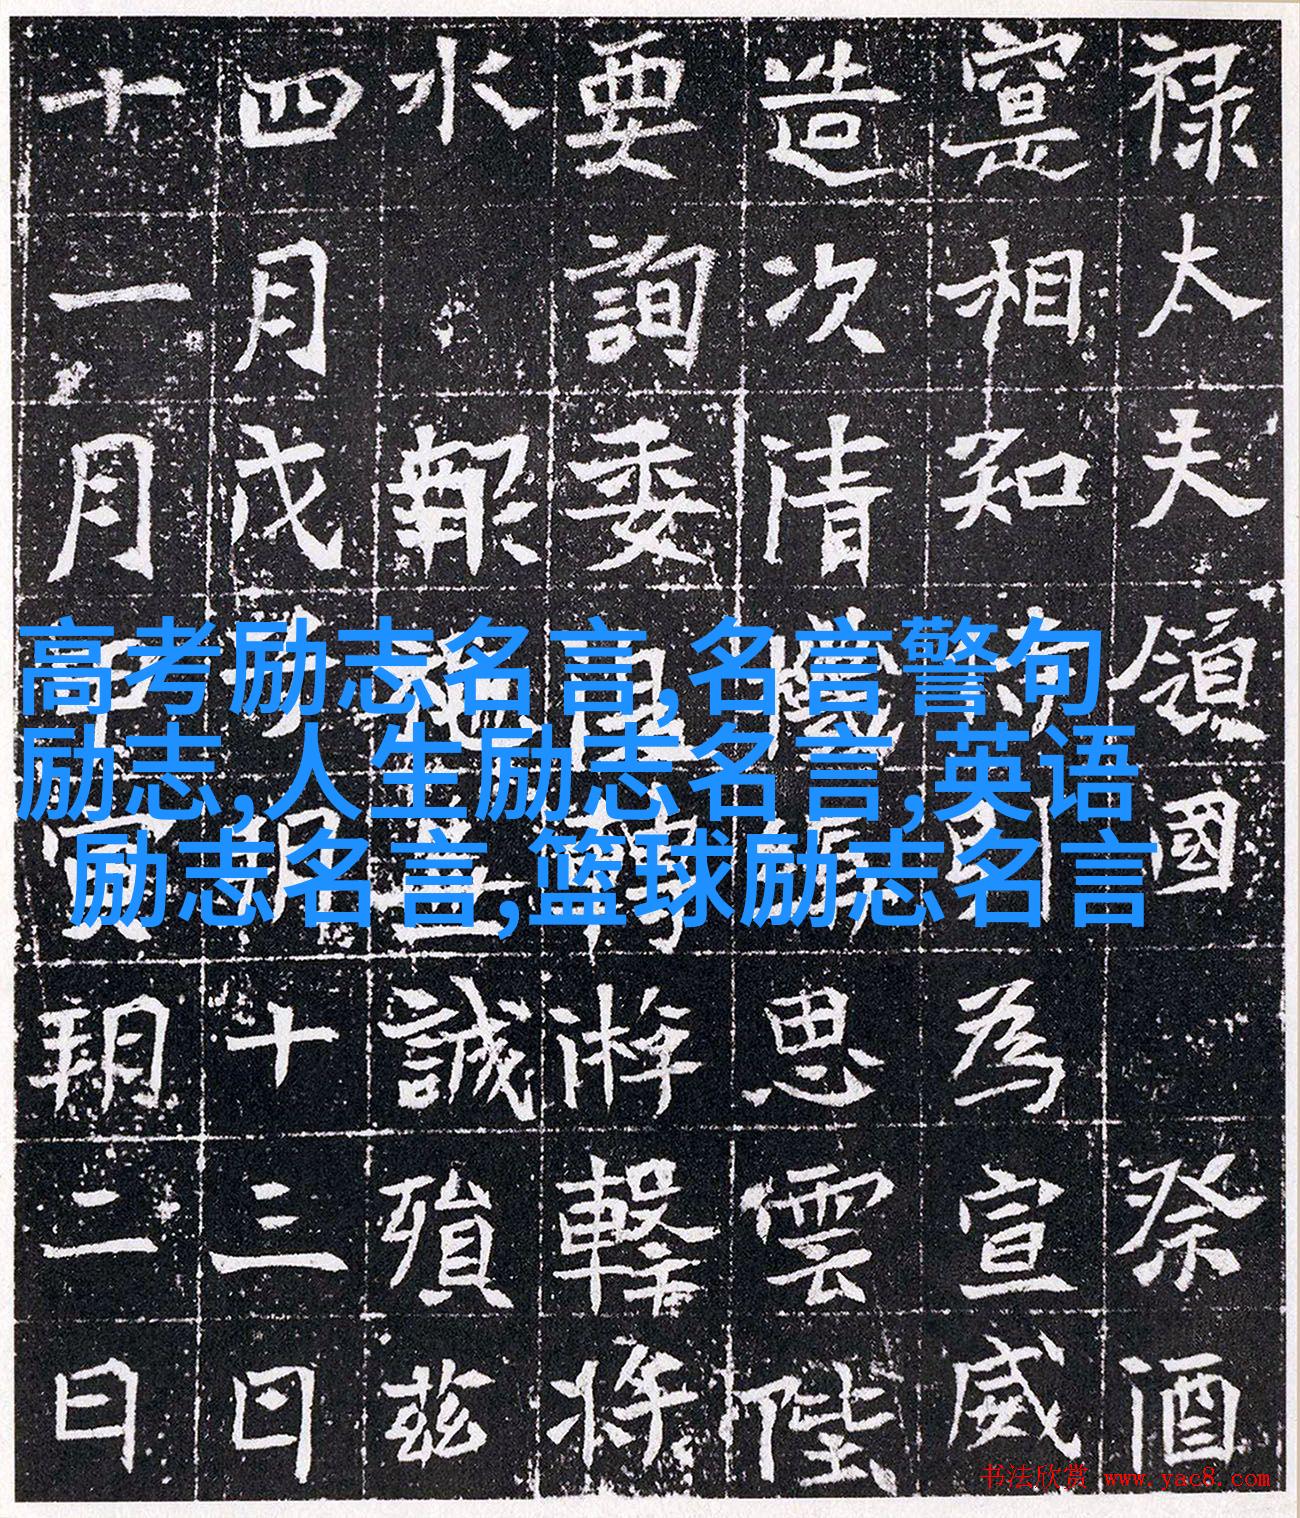 禄太夫領國 祭酒
寔相知 為宣威
造次清 思雲陛
要詢委 游擊将
水 報施 誠殞茲
四月戊 十三日
十一月 寅朔二日
高考励志名言,名言警句
励志,人生励志名言,英语
励志名言,篮球励志名言
书法欣赏 www.yac8.com